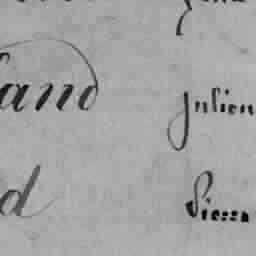 and Julien
d Pierre